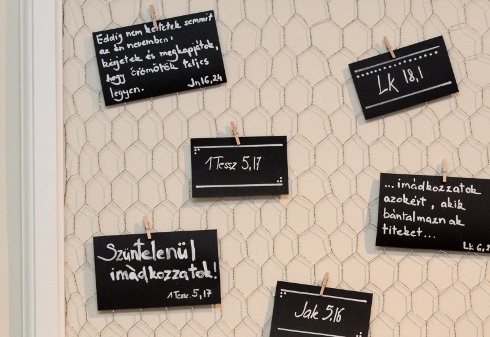 Eddig nem kértetek semmit
az én nevemben:
kérjetek és megkapjátok,
hogy örömötök teljes
legyen.
Jn 16,24
Lk 18,1
1 Tessz 5,17
...imádkozzatok
azokért, akik
bántalmaznak
titeket...
Lk 6,
Szüntelenül
imádkozzatok!
1 Tessz. 5,17
Jak 5.16